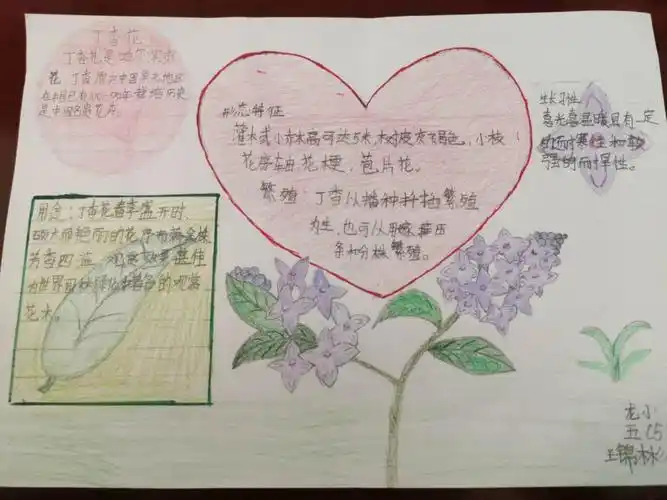 丁香花
丁香花是哈尔滨市
花 丁香
中国
在中国已有 年栽培历史
是中国名贵花卉。
形态特征
灌木或小乔木高可达5米,树皮灰褐色,小枝
花序轴 花梗,苞片花。
繁殖:丁香以播种扦插繁殖
为主,也可以用嫁接压
条和分株繁殖。
生长习性
喜光喜温暖具有一定
的耐寒性和较
强的耐旱性。
用途:丁香花春季盛开时,
硕大而艳丽的花序布满全株
芳香四溢 观赏效果甚佳
为世界园林 的观赏
花木。
龙小
五(5
王锦彬